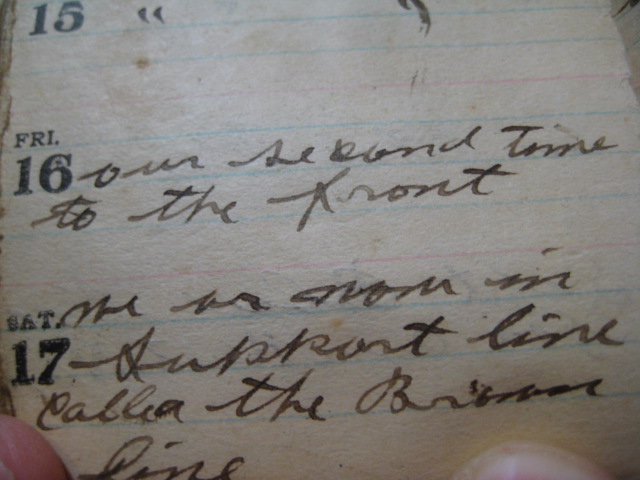 15 "
FRI.
16 our second time
to the front
SAT. we ar now in
17 Support line
called the Brown
line